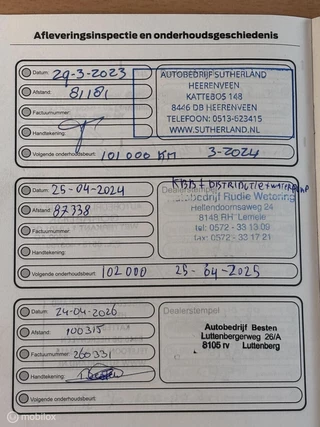 Afleveringsinspectie en onderhoudsgeschiedenis
Datum: 29-3-2023
Afstand: 81181
Factuurnummer:
Handtekening:
Volgende onderhoudsbeurt: 101 000 KM 3-2024
AUTOBEDRIJF SUTHERLAND
HEERENVEEN
KATTEBOS 148
8446 DB HEERENVEEN
TELEFOON: 0513-623415
WWW.SUTHERLAND.NL
Datum: 25-04-2024
Afstand: 87338
Factuurnummer:
Handtekening:
Volgende onderhoudsbeurt: 102 000 25-04-2025
Dealerstempel
DISTRIBUTIE
Autobedrijf Rudie Wetering
Hellendoornseweg 24
8148 RH Lemele
tel: 0572 - 33 13 09
fax: 0572 - 33 17 21
Datum: 24-04-2026
Afstand: 100315
Factuurnummer: 260331
Handtekening:
Volgende onderhoudsbeurt:
Dealerstempel
Autobedrijf Besten
Luttenbergerweg 26/A
8105 rv Luttenberg
mobilox